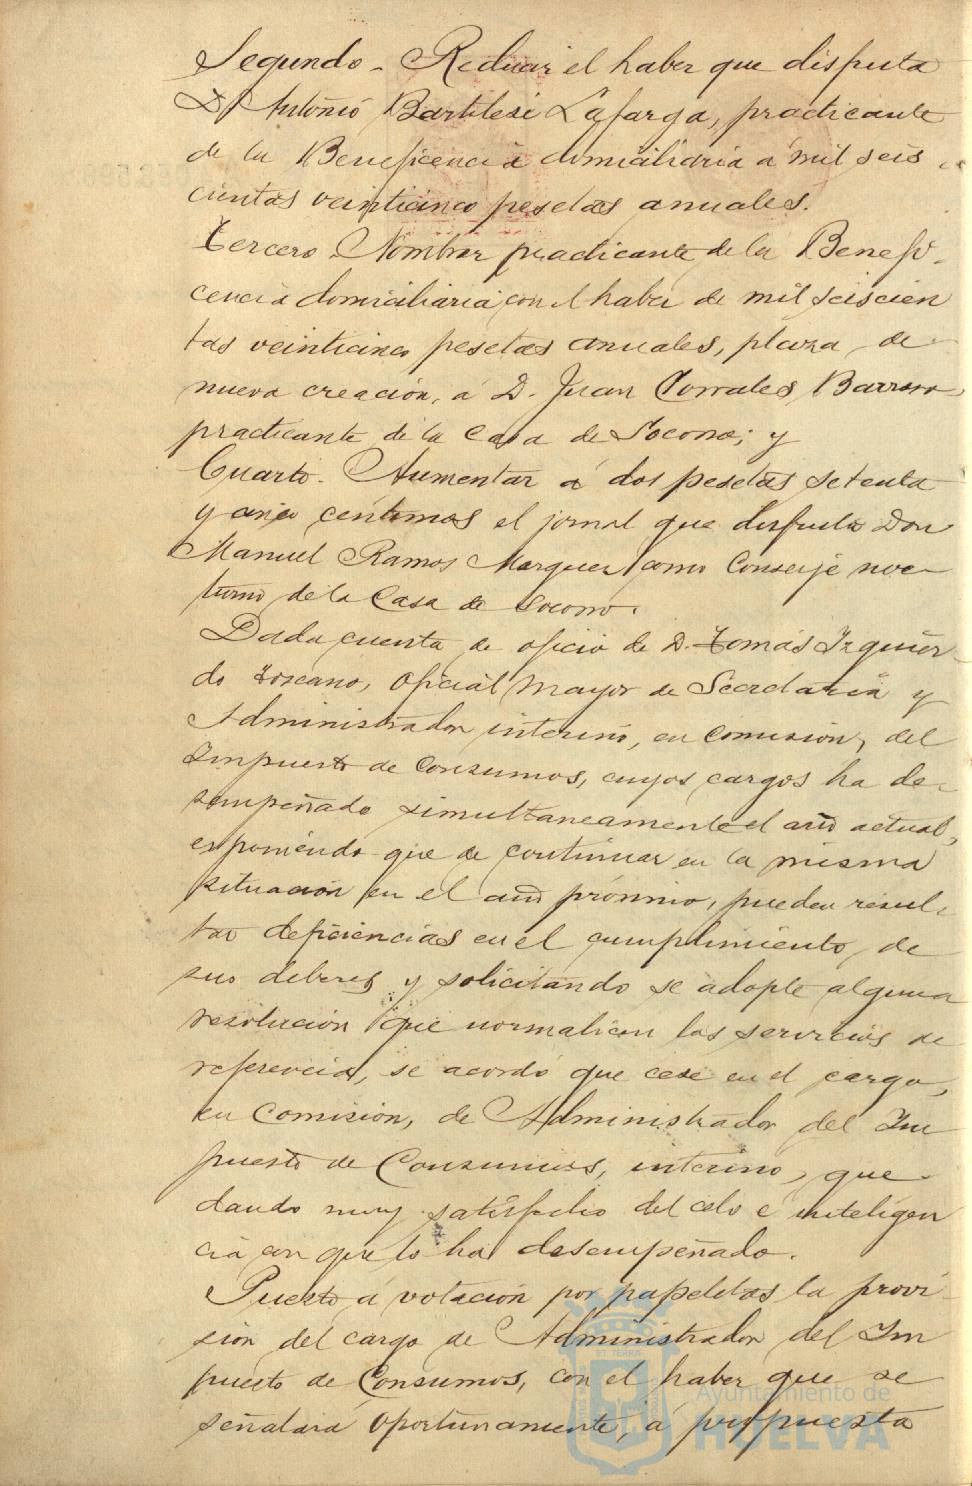 Segundo - Reducir el haber que disfruta
D. Antonio Bartilesi Lafarga, practicante
de la Beneficencia domiciliaria a mil seis
cientas veinticinco pesetas anuales.
Tercero - Nombrar practicante de la Benefi-
cencia domiciliaria con el haber de mil seiscien
tas veinticinco pesetas anuales, plaza de
nueva creación, a D. Juan Corrales Barrera
practicante de la Casa de Socorro; y
Cuarto - Aumentar a dos pesetas setenta
y cinco céntimos el jornal que disfruta Don
Manuel Ramos Marquez como Conserje noc-
turno de la Casa de Socorro.
Dada cuenta de oficio de D. Tomás Izquier-
do Toscano, Oficial Mayor de Secretaría y
Administrador interino, en comisión, del
Impuesto de Consumos, cuyos cargos ha de-
sempeñado simultaneamente el año actual,
esponiendo que de continuar en la misma
situación en el año próximo, pueden resul-
tar deficiencias en el cumplimiento de
sus deberes y solicitando se adopte alguna
resolución que normalicen los servicios de
referencia, se acordó que cese en el cargo,
en Comisión, de Administrador del Im
puesto de Consumos, interino, que-
dando muy satisfecho del celo e inteligen
cia con que lo ha desempeñado.
Puesto a votación por papeletas la provi-
sión del cargo de Administrador del Im
puesto de Consumos, con el haber que se
señalará oportunamente, a propuesta
ET TERRA
Ayuntamiento de
HUELVA